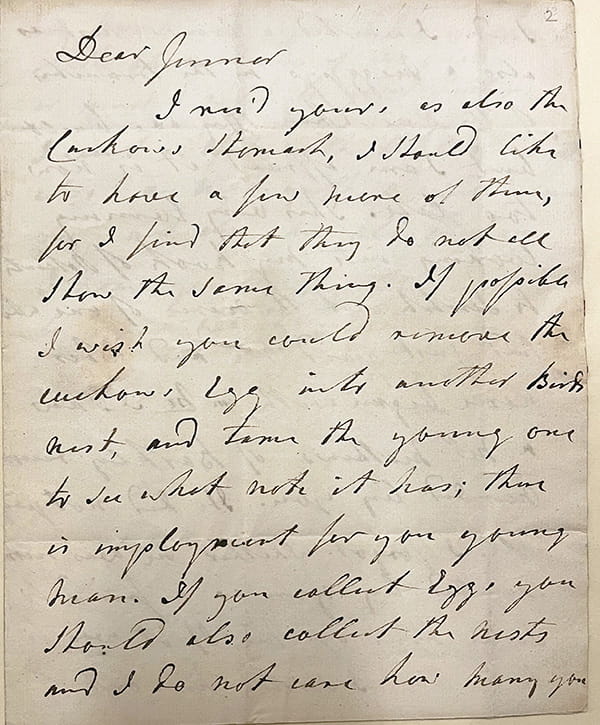 2
Dear Jenner
I rec'd yours, as also the
Cuckow's Stomach, I should like
to have a few more of them,
for I find that they do not all
show the same thing. If possible
I wish you could remove the
cuckows Egg into another Birds
nest, and tame the young one
to see what note it has; there
is imployment for you young
man. If you collect Eggs you
should also collect the nests
and I do not care how many you